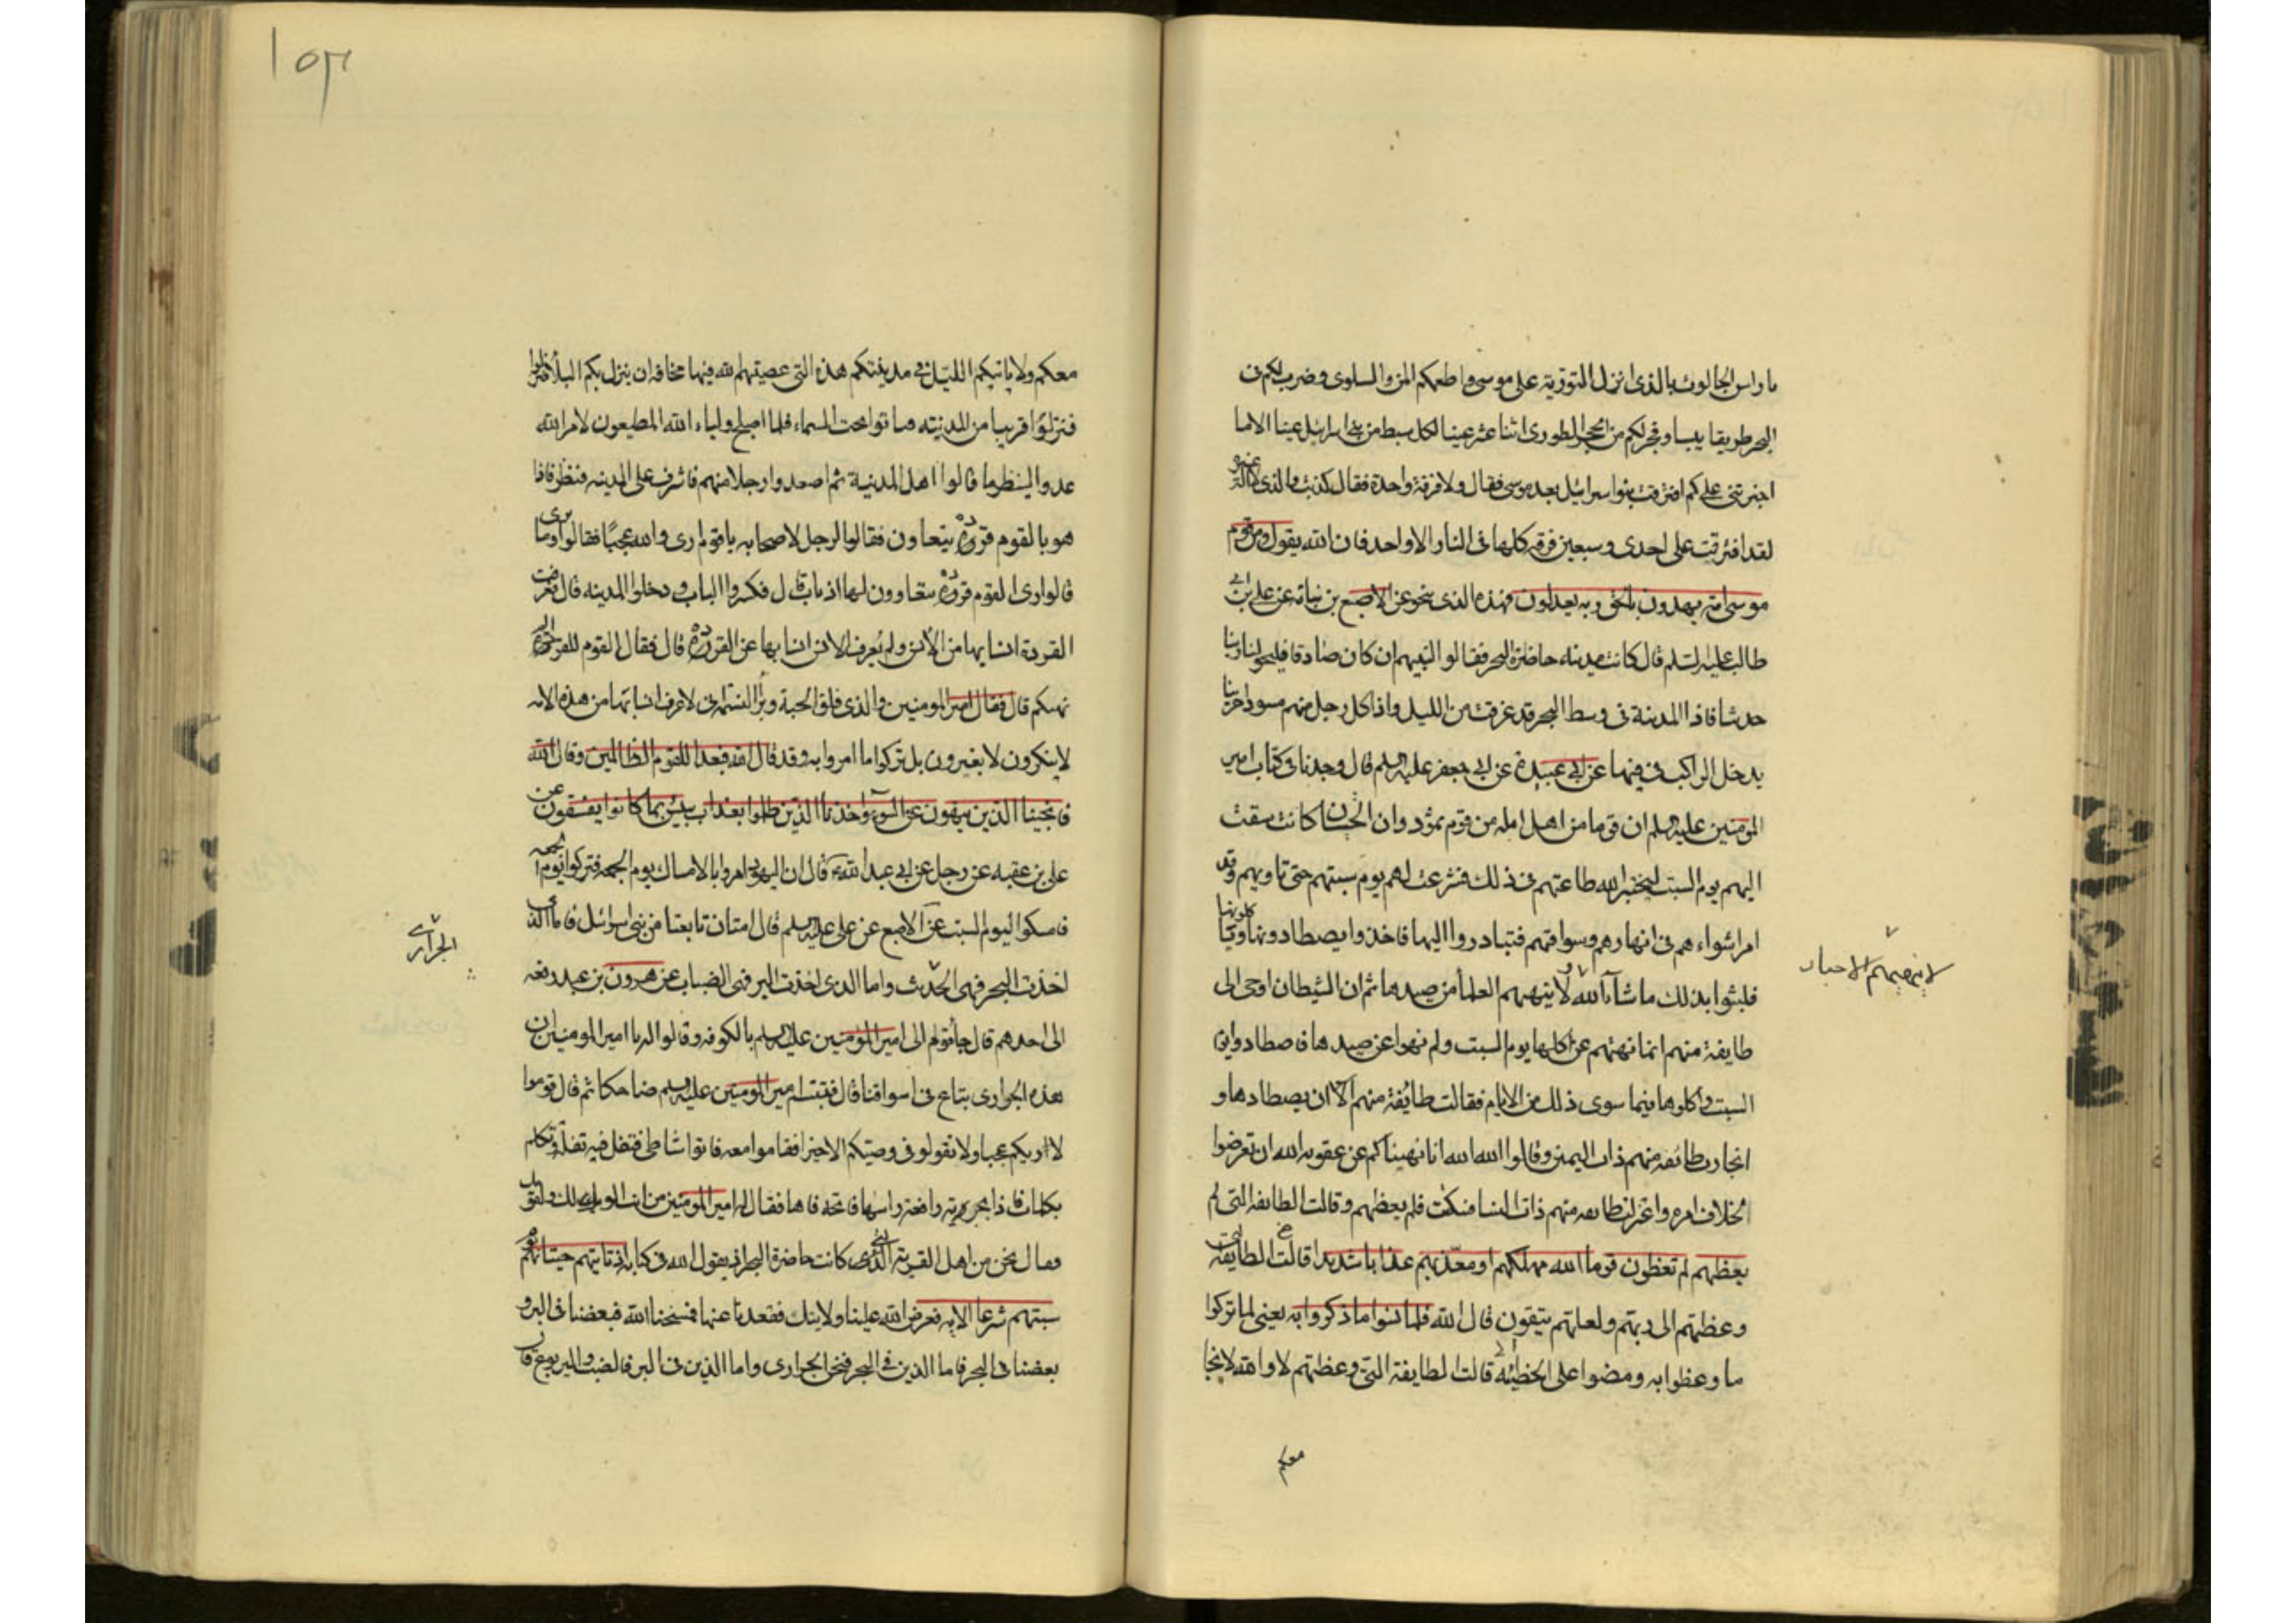 يا راس الجالوت بالذى انزل التورية على موسى واطعمكم المن والسلوى وضرب لكم فى
البحر طريقا يبسا وفجر لكم من الحجر الطورى اثنا عشر عينا لكل سبط من بنى اسرائيل عينا الا ما
اخبرتنى على كم افترقت بنو اسرائيل بعد موسى فقال ولا فرقة واحدة فقال كذبت والذى لا اله غيره
لقد افترقت على احدى وسبعين فرقه كلها فى النار الا واحد فان الله يقول ومن قوم
موسى امة يهدون بالحق وبه يعدلون فهذه الذى تنجو عن الاصبع بن نباته عن على بن ابى
طالب عليه السلم قال كانت مدينه حاضرة البحر فقالوا لنبيهم ان كان صادقا فليحولنا ربنا
جريثا فاذا المدينة فى وسط البحر قد غرقت من الليل واذا كل رجل منهم مسودا جريثا
يدخل الراكب فى فيها عن ابى عبيدة عن ابى جعفر عليه السلم قال وجدنا فى كتاب امير
المومنين عليه السلم ان قوما من اهل ايله من قوم ثمود وان الحيتان كانت سقت
اليهم يوم السبت ليختبر الله طاعتهم فى ذلك فشرعت لهم يوم سبتهم حتى نا ديهم وقد
امر اشواء هم فى انهارهم وسواقتهم فتبادروا اليها فاخذوا يصطادونها وياكلونها
فلبثوا بذلك ما شاء الله لا ينهيهم العلمأ من صيدها ثم ان الشيطان اوحى الى
لا ينهيهم الاحبار
طايفة منهم انما نهيتم عن اكلها يوم السبت ولم تنهوا عن صيدها فاصطادوا يوم
السبت واكلوها فيما سوى ذلك من الايام فقالت طايفة منهم الآ ان يصطادها و
انحازت طائفه منهم ذات اليمين وقالوا الله الله انا نهيناكم عن عقوبه الله ان تعرضوا
لخلاف امره واعتزلت طايفه منهم ذات اليسار فسكت فلم يعظهم وقالت الطايفه التى لم
يعظهم لم تعظون قوما الله مهلكهم او معذبهم عذابا شديدا قالت الطايفة التى
وعظتهم الى ربهم ولعلهم يتقون قال الله فلما نسوا ما ذكروا به يعنى لما تركوا
ما وعظوا به ومضوا على الخطيئه قالت الطايفة التى وعظتهم لا والله لا نجا
معكم
١٥٣
معكم ولا ياتيكم الليل فى مدينتكم هذه التى عصيتم الله فيها مخافه ان ينزل بكم البلأ
فنزلوا قريبا من المدينته فباتوا تحت السماء فلما اصبح اولياء الله المطيعون لامر الله
غدوا لينظروا ما قالوا اهل المدينة ثم اصعدوا رجلا منهم فاشرف على المدينه فنظر فاذا
هو بالقوم قردة يتعاوون فقالوا الرجل لاصحابه يا قوم ارى والله عجبا فقالوا وما ترى
قالوا ارى القوم قردة يتعاوون لها اذناب قال فكسروا الباب ودخلوا المدينه قال فعرفت
القردة انسابها من الانس ولم يعرف الانس انسابها عن القردة قال فقال القوم للقردة الم
ننهكم قال فقال امير المومنين والذى فلق الحبة وبرأ النسمة انى لاعرف انسابها من هذه الامه
لا ينكرون لا يغيرون بل تركوا ما امروا به وقد قال الله فبعدا للقوم الظالمين وقال الله
فانجينا الذين ينهون عن السوء واخذنا الذين ظلموا بعذاب بئيس بما كانوا يفسقون عن
على بن عقبه عن رجل عن ابى عبد الله قال ان اليهود امروا بالامساك يوم الجمعه فتركوا يوم الجمعه
فامسكوا اليوم السبت عن الاصبع عن على عليه السلم قال امتان تابعتا من بنى اسرائيل فاما الذى
الجرارى
اخذت البحر فهى الجريث واما الذى اخذت البر فهى الضباب عن هرون بن عبد رفعه
الى احدهم قال جأ قوم الى امير المومنين عليه السلم بالكوفه وقالوا له يا امير المومنين ان
هذه الجرارى يتباع فى اسواقنا قال فتبسم امير المومنين عليه السلم ضاحكا ثم قال قوموا
لا اريكم عجبا ولا تقولوا فى وصيتكم الا خيرا فقاموا معه فاتوا شاطى فتفل فيه تفلة وتكلم
بكلمات فاذا بجريته رافعة راسها فاتحة فاها فقال له امير المومنين من انت الويل لك ولقومك
فقال نحن من اهل القرية التى كانت حاضرة البحر اذ يقول الله فى كتابه اذ تاتيهم حيتانهم يوم
سبتهم شرعا الايه فعرض الله علينا ولايتك فقعدنا عنها فمسخنا الله فبعضنا فى البر و
بعضنا فى البحر فاما الذين فى البحر فنحن الجرارى واما الذين فى البر فالضب واليربوع قال